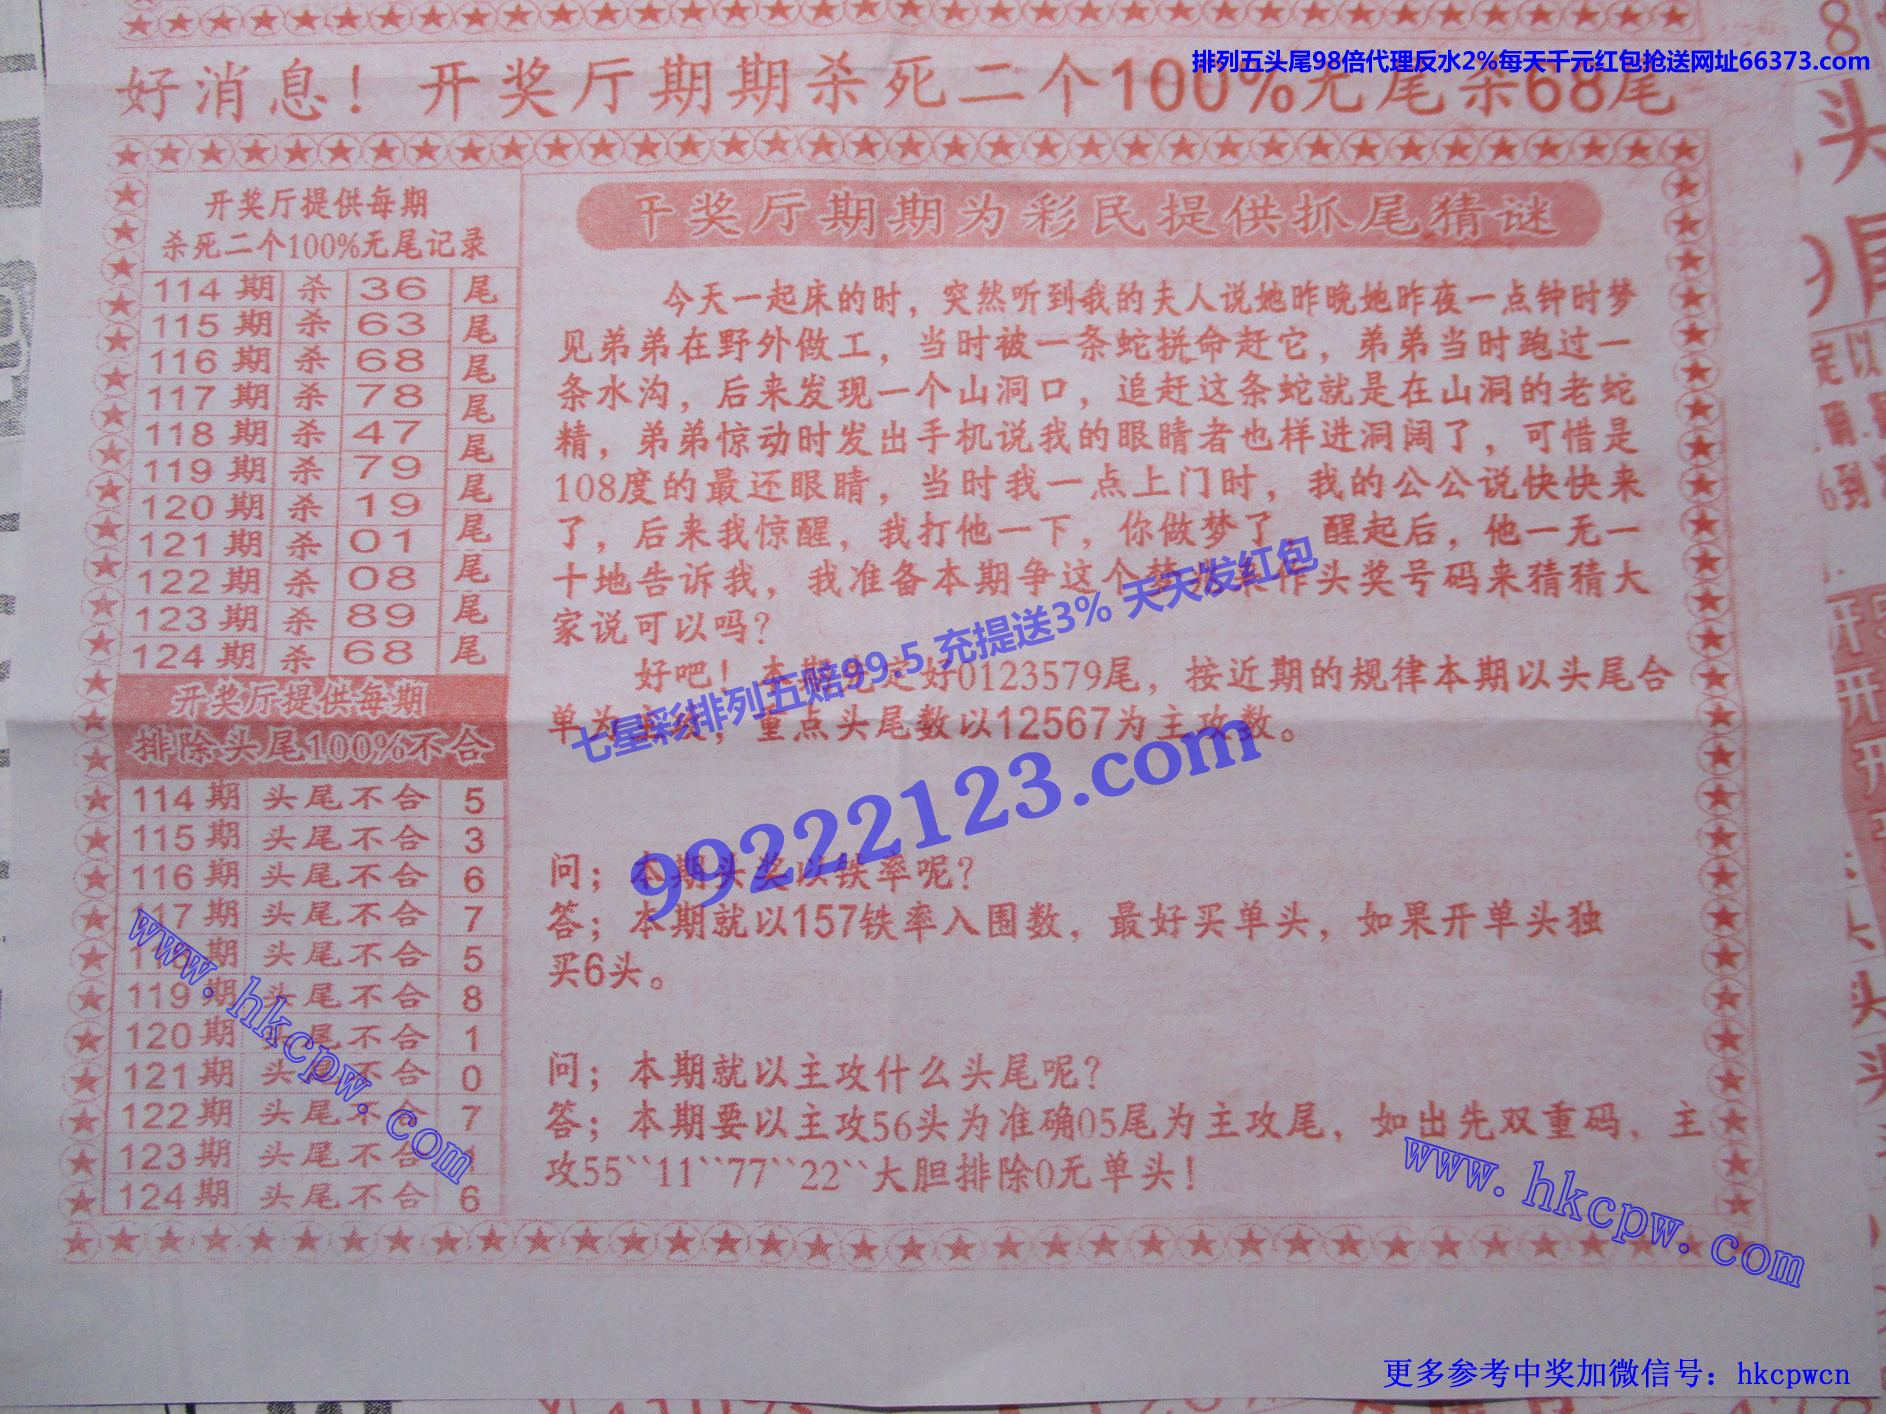 排列五头尾98倍代理反水2%每天千元红包抢送网址66373.com
好消息！开奖厅期期杀死二个100%无尾杀68尾
开奖厅提供每期
杀死二个100%无尾记录
114期 杀 36 尾
115期 杀 63 尾
116期 杀 68 尾
117期 杀 78 尾
118期 杀 47 尾
119期 杀 79 尾
120期 杀 19 尾
121期 杀 01 尾
122期 杀 08 尾
123期 杀 89 尾
124期 杀 68 尾
开奖厅提供每期
排除头尾100%不合
114期 头尾不合 5
115期 头尾不合 3
116期 头尾不合 6
117期 头尾不合 7
118期 头尾不合 5
119期 头尾不合 8
120期 头尾不合 1
121期 头尾不合 0
122期 头尾不合 7
123期 头尾不合
124期 头尾不合 6
奖厅期期为彩民提供抓尾猜谜
今天一起床的时，突然听到我的夫人说她昨晚她昨夜一点钟时梦
见弟弟在野外做工，当时被一条蛇拼命赶它，弟弟当时跑过一
条水沟，后来发现一个山洞口，追赶这条蛇就是在山洞的老蛇
精，弟弟惊动时发出手机说我的眼睛者也样进洞阔了，可惜是
108度的最还眼睛，当时我一点上门时，我的公公说快快来
了，后来我惊醒，我打他一下，你做梦了，醒起后，他一无一
十地告诉我，我准备本期争这个梦 来作头奖号码来猜猜大
家说可以吗？
好吧！本期 定好0123579尾，按近期的规律本期以头尾合
单为主攻，重点头尾数以12567为主攻数。
问；本期头奖以铁率呢？
答；本期就以157铁率入围数，最好买单头，如果开单头独
买6头。
问；本期就以主攻什么头尾呢？
答；本期要以主攻56头为准确05尾为主攻尾，如出先双重码，主
攻55``11``77``22``大胆排除0无单头！
七星彩排列五赔99.5 充提送3% 天天发红包
99222123.com
www.hkcpw.com
www.hkcpw.com
更多参考中奖加微信号：hkcpwcn